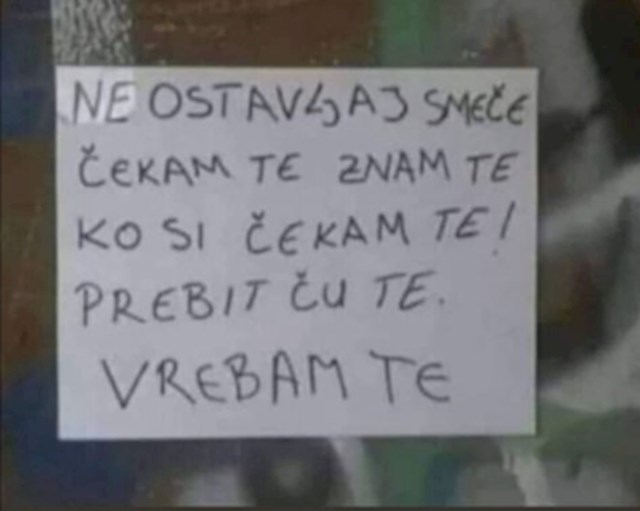 NE OSTAVLJAJ SMEČE
ČEKAM TE ZNAM TE
KO SI ČEKAM TE!
PREBIT ČU TE.
VREBAM TE